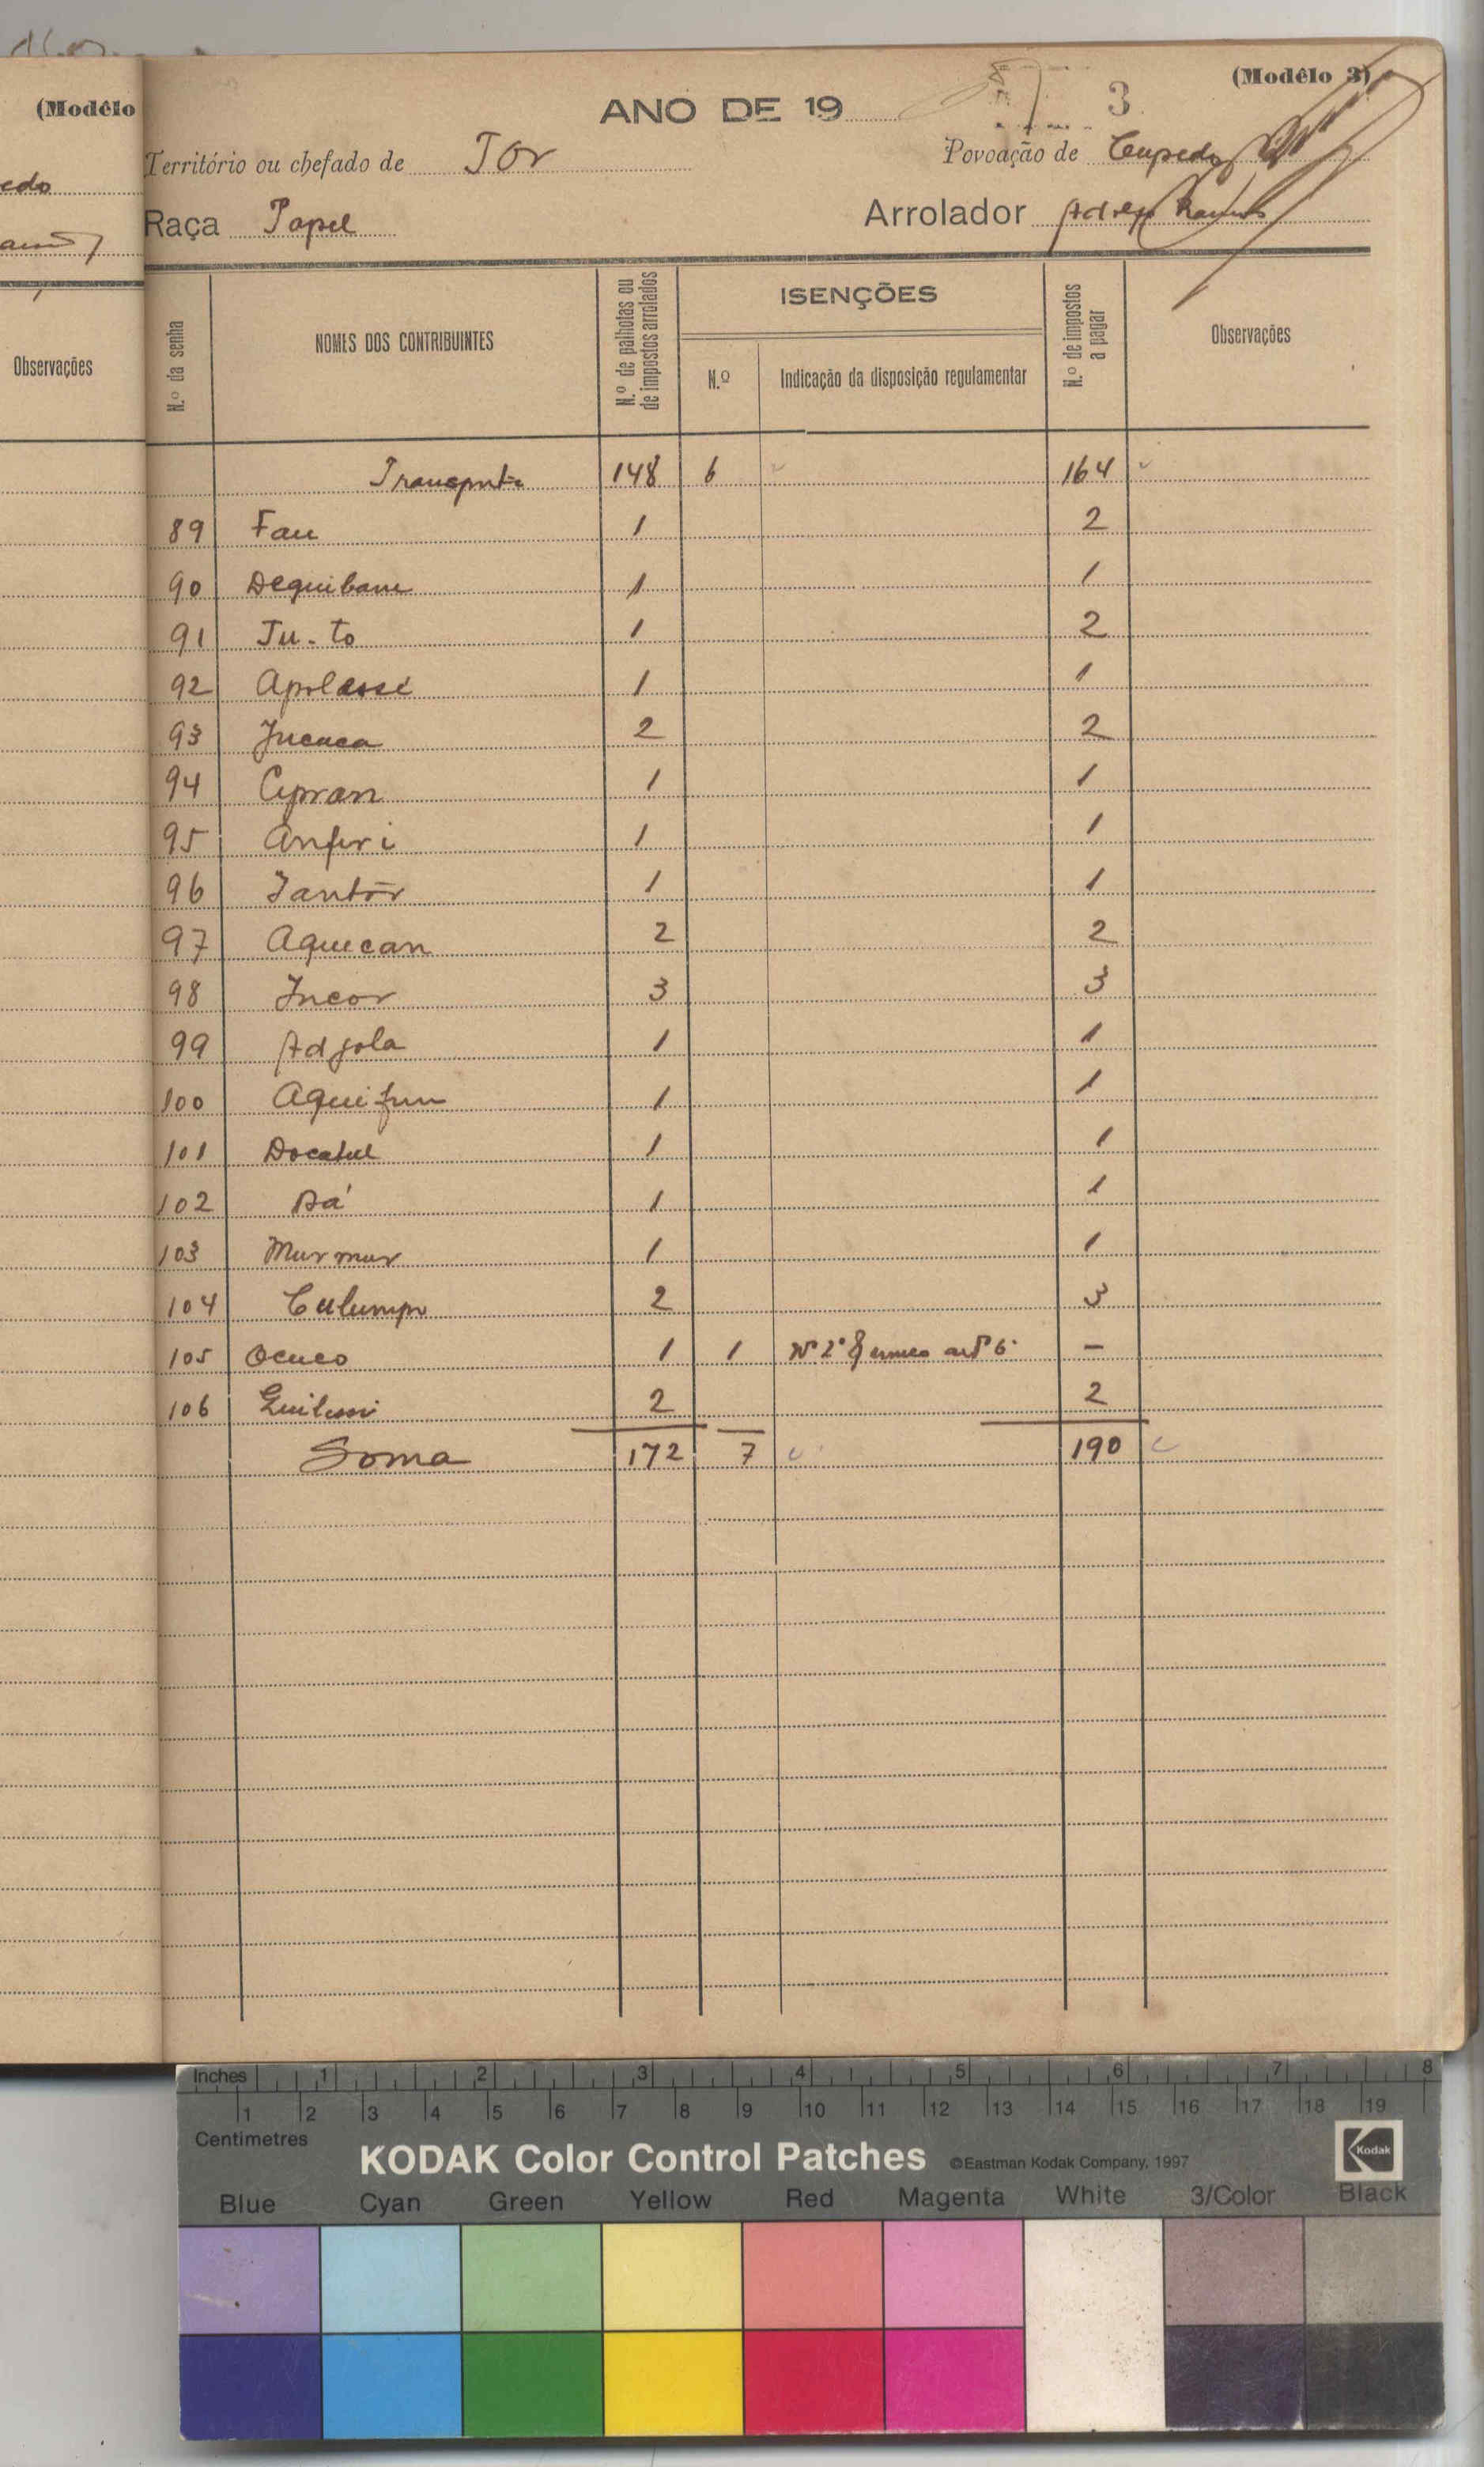 (Modêlo
edo
Observações
(Modêlo 3)
ANO DE 19
3
Território ou chefado de Tor
Povoação de Cupedo
Raça Papel
Arrolador
N.º da senha
NOMES DOS CONTRIBUINTES
N.º de palhotas ou de impostos arrolados
ISENÇÕES
N.º
Indicação da disposição regulamentar
N.º de impostos a pagar
Observações
Transporte 148 6 164
89 Fau 1 2
90 Dequibam 1 1
91 Ju-to 1 2
92 Apolassé 1 1
93 Jucuca 2 2
94 Cypran 1 1
95 Anferi 1 1
96 Jantór 1 1
97 Aquecan 2 2
98 Incor 3 3
99 Adjola 1 1
100 Aquifun 1 1
101 Docatul 1 1
102 Dá 1 1
103 Murmur 1 1
104 Culumpo 2 3
105 Ocuco 1 1 Nº 2º § unico artº 6º —
106 2 2
Soma 172 7 190
Inches 1 2 3 4 5 6 7 8
1 2 3 4 5 6 7 8 9 10 11 12 13 14 15 16 17 18 19
Centimetres
KODAK Color Control Patches ©Eastman Kodak Company, 1997
Kodak
Blue Cyan Green Yellow Red Magenta White 3/Color Black